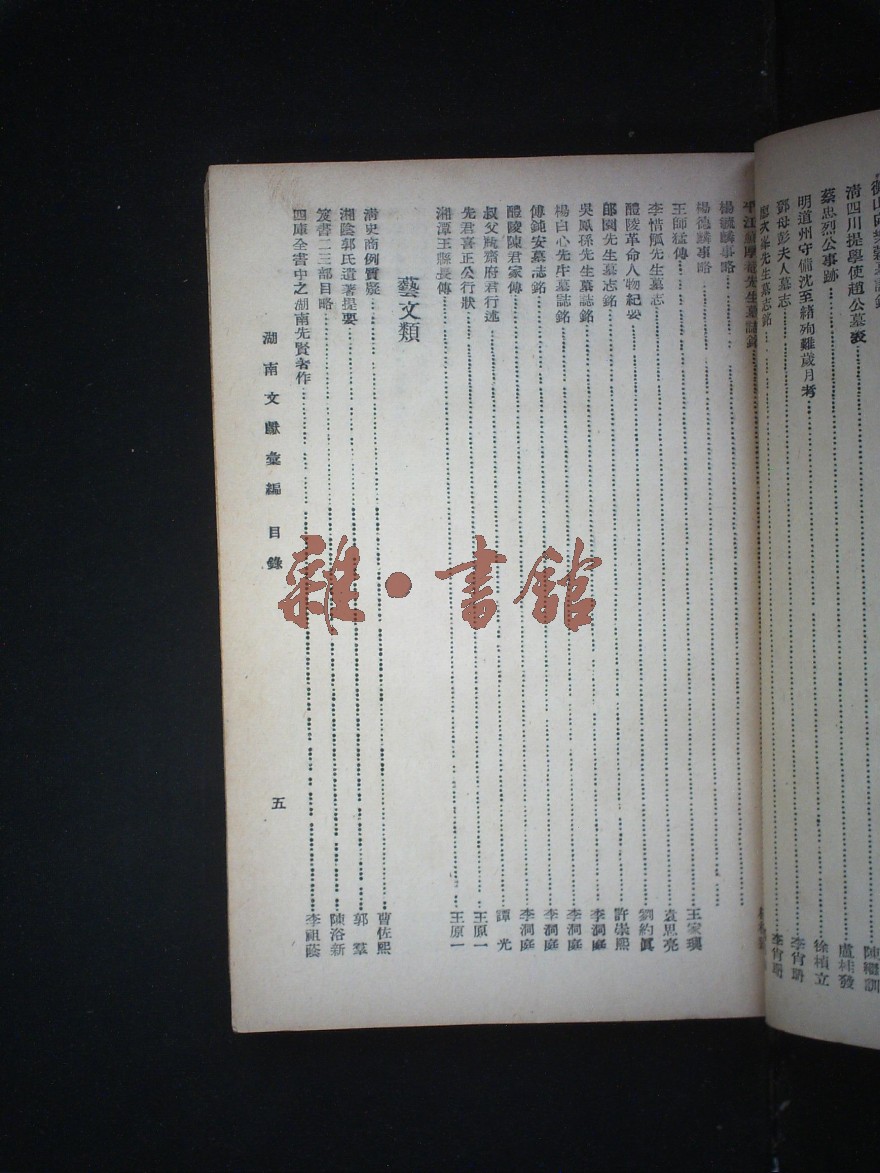 清四川提學使趙公墓表……盧桂發
蔡忠烈公事跡……徐楨立
明道州守備沈至緒殉難歲月考……李肖聃
鄧母彭夫人墓志……李肖聃
先生墓志銘
平江蘇厚菴先生墓誌銘
楊毓麟事略
楊德麟事略
王師猛傳……王家瓆
李惜佩先生墓志……袁思亮
醴陵革命人物紀要……劉約眞
郋園先生墓志銘……許崇熙
吳鳳孫先生墓誌銘……李洞庭
楊白心先生墓誌銘……李洞庭
傅鈍安墓誌銘……李洞庭
醴陵陳君家傳……李洞庭
叔父毓齋府君行述……譚光
先君喜正公行狀……王原一
湘潭王縣長傳……王原一
藝文類
淸史商例質疑……曹佐熙
湘陰郭氏遺著提要……郭羣
笈書二三部目略……陳浴新
四庫全書中之湖南先賢著作……李祖蔭
湖南文獻彙編 目錄
五
雜·書館